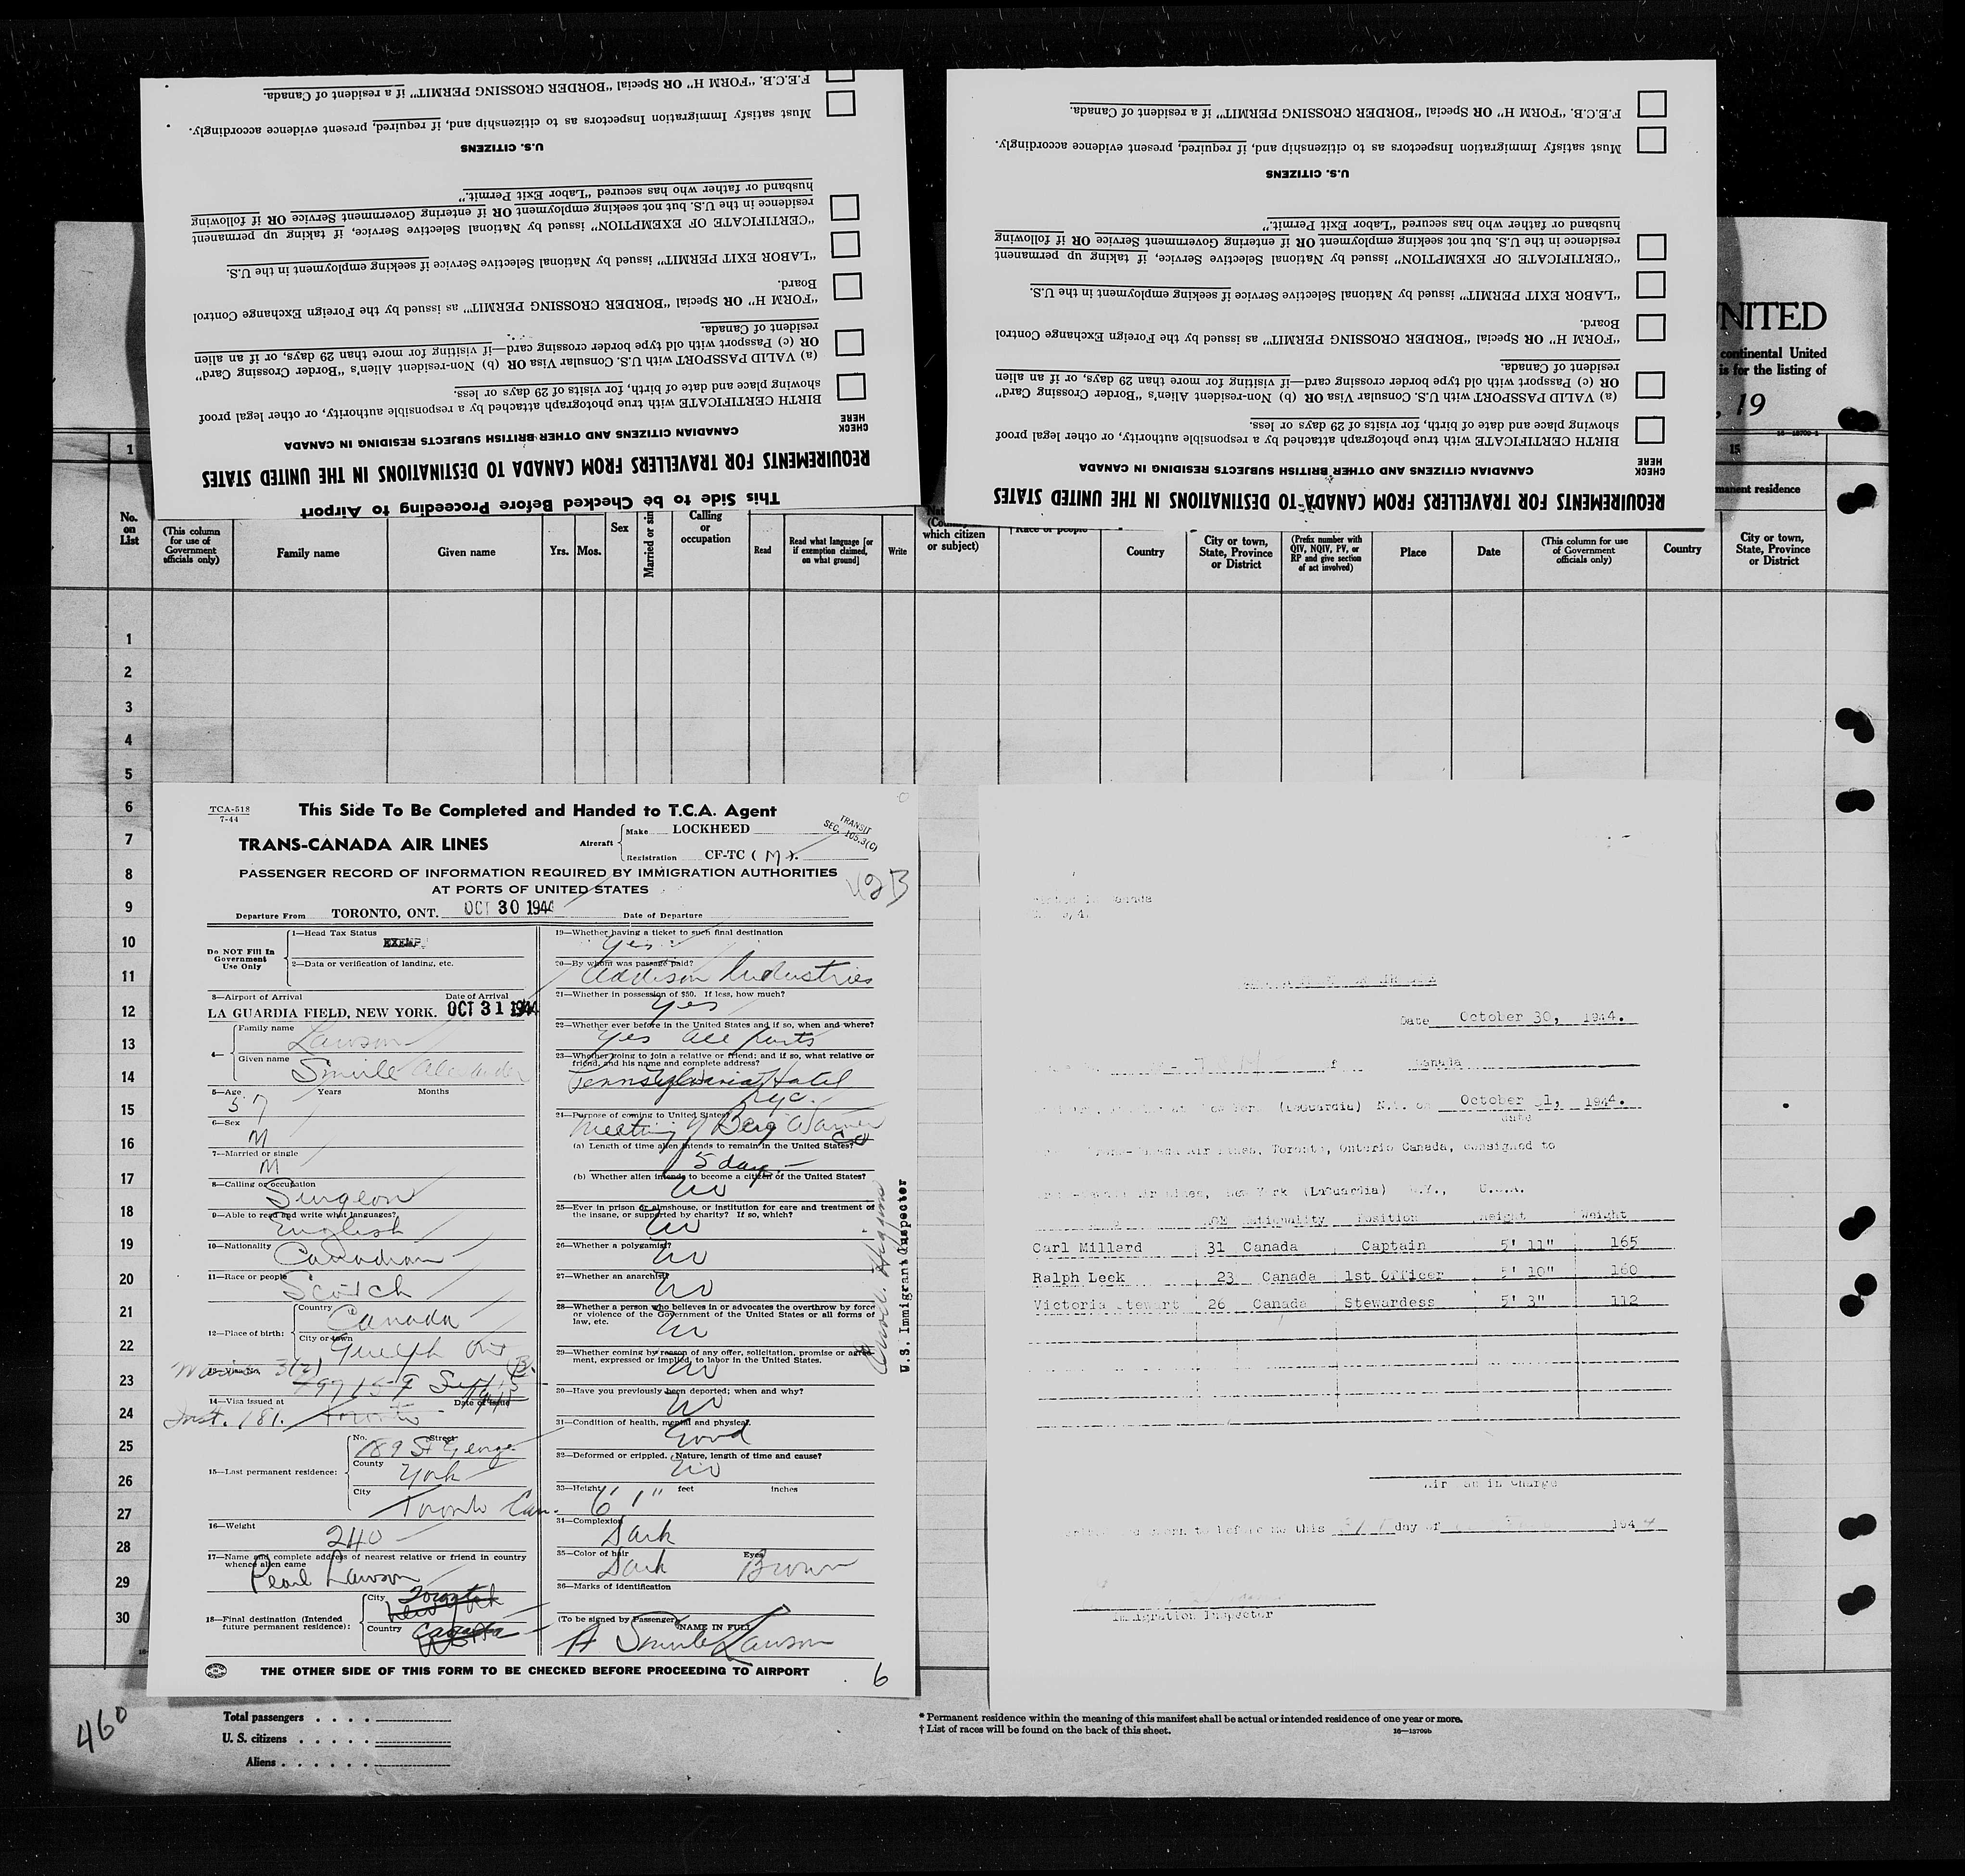 This Side to be Checked Before Proceeding to Airport
REQUIREMENTS FOR TRAVELLERS FROM CANADA TO DESTINATIONS IN THE UNITED STATES
CHECK HERE
CANADIAN CITIZENS AND OTHER BRITISH SUBJECTS RESIDING IN CANADA
BIRTH CERTIFICATE with true photograph attached by a responsible authority, or other legal proof
showing place and date of birth, for visits of 29 days or less.
(a) VALID PASSPORT with U.S. Consular Visa OR (b) Non-resident Alien's "Border Crossing Card"
OR (c) Passport with old type border crossing card—if visiting for more than 29 days, or if an alien
resident of Canada.
"FORM H" OR Special "BORDER CROSSING PERMIT" as issued by the Foreign Exchange Control
Board.
"LABOR EXIT PERMIT" issued by National Selective Service if seeking employment in the U.S.
"CERTIFICATE OF EXEMPTION" issued by National Selective Service, if taking up permanent
residence in the U.S. but not seeking employment OR if entering Government Service OR if following
husband or father who has secured "Labor Exit Permit."
U.S. CITIZENS
Must satisfy Immigration Inspectors as to citizenship and, if required, present evidence accordingly.
F.E.C.B. "FORM H" OR Special "BORDER CROSSING PERMIT" if a resident of Canada.
REQUIREMENTS FOR TRAVELLERS FROM CANADA TO DESTINATIONS IN THE UNITED STATES
CHECK HERE
CANADIAN CITIZENS AND OTHER BRITISH SUBJECTS RESIDING IN CANADA
BIRTH CERTIFICATE with true photograph attached by a responsible authority, or other legal proof
showing place and date of birth, for visits of 29 days or less.
(a) VALID PASSPORT with U.S. Consular Visa OR (b) Non-resident Alien's "Border Crossing Card"
OR (c) Passport with old type border crossing card—if visiting for more than 29 days, or if an alien
resident of Canada.
"FORM H" OR Special "BORDER CROSSING PERMIT" as issued by the Foreign Exchange Control
Board.
"LABOR EXIT PERMIT" issued by National Selective Service if seeking employment in the U.S.
"CERTIFICATE OF EXEMPTION" issued by National Selective Service, if taking up permanent
residence in the U.S. but not seeking employment OR if entering Government Service OR if following
husband or father who has secured "Labor Exit Permit."
U.S. CITIZENS
Must satisfy Immigration Inspectors as to citizenship and, if required, present evidence accordingly.
F.E.C.B. "FORM H" OR Special "BORDER CROSSING PERMIT" if a resident of Canada.
NITED
continental United
is for the listing of
, 19
1
15
manent residence
No. on List
(This column for use of Government officials only)
Family name
Given name
Yrs.
Mos.
Sex
Married or sin
Calling or occupation
Read
Read what language [or if exemption claimed, on what ground]
Write
which citizen or subject)
Country
City or town, State, Province or District
(Prefix number with QIV, NQIV, PV, or RP and give section of act involved)
Place
Date
(This column for use of Government officials only)
Country
City or town, State, Province or District
1
2
3
4
5
6
7
8
9
10
11
12
13
14
15
16
17
18
19
20
21
22
23
24
25
26
27
28
29
30
TCA-518
7-44
This Side To Be Completed and Handed to T.C.A. Agent
TRANS-CANADA AIR LINES
Aircraft
Make LOCKHEED
Registration CF-TC (M).
TRANSIT
SEC. 105.3(C)
PASSENGER RECORD OF INFORMATION REQUIRED BY IMMIGRATION AUTHORITIES
AT PORTS OF UNITED STATES
Departure From TORONTO, ONT. OCT 30 1944 Date of Departure
Do NOT Fill In
Government
Use Only
1—Head Tax Status
EXEMP
2—Data or verification of landing, etc.
3—Airport of Arrival Date of Arrival
LA GUARDIA FIELD, NEW YORK. OCT 31 1944
4—
Family name
Lawson
Given name
Smirle Alexander
5—Age Years Months
57
6—Sex
M
7—Married or single
M
8—Calling or occupation
Surgeon
9—Able to read and write what languages?
English
10—Nationality
Canadian
11—Race or people
Scotch
12—Place of birth:
Country
Canada
City or town
Guelph Ont
14—Visa issued at Date of Issue
Inst. 181. Toronto
15—Last permanent residence:
No. Street
189 St George
County
York
City
Toronto Can.
16—Weight
240
17—Name and complete address of nearest relative or friend in country
whence alien came
Pearl Lawson
18—Final destination (Intended
future permanent residence):
City
Toronto
New York
Country
Canada
USA
19—Whether having a ticket to such final destination
Yes
20—By whom was passage paid?
Addison Industries
21—Whether in possession of $50. If less, how much?
Yes
22—Whether ever before in the United States and if so, when and where?
Yes all parts
23—Whether going to join a relative or friend; and if so, what relative or
friend, and his name and complete address?
Pennsylvania Hotel
N.y.C.
24—Purpose of coming to United States?
Meeting of Borg Warner
Co
(a) Length of time alien intends to remain in the United States?
5 days
(b) Whether alien intends to become a citizen of the United States?
No
25—Ever in prison or almshouse, or institution for care and treatment of
the insane, or supported by charity? If so, which?
No
26—Whether a polygamist?
No
27—Whether an anarchist?
No
28—Whether a person who believes in or advocates the overthrow by force
or violence of the Government of the United States or all forms of
law, etc.
No
29—Whether coming by reason of any offer, solicitation, promise or agree-
ment, expressed or implied, to labor in the United States.
No
30—Have you previously been deported; when and why?
No
31—Condition of health, mental and physical.
Good
32—Deformed or crippled. Nature, length of time and cause?
No
33—Height feet inches
6' 1"
34—Complexion
Dark
35—Color of hair Eyes
Dark Brown
36—Marks of identification
(To be signed by Passenger) NAME IN FULL
A Smirle Lawson
U.S. Immigrant Inspector
THE OTHER SIDE OF THIS FORM TO BE CHECKED BEFORE PROCEEDING TO AIRPORT
6
Date October 30, 1944.
Canada
(LaGuardia) N.Y. on October 31, 1944.
date
Trans-Canada Air Lines, Toronto, Ontario Canada, consigned to
Air Lines, New York (LaGuardia) N.Y., U.S.A.
AGE Nationality Position Height Weight
Carl Millard 31 Canada Captain 5' 11" 165
Ralph Leek 23 Canada 1st Officer 5' 10" 160
Victoria Stewart 26 Canada Stewardess 5' 3" 112
in Charge
sworn to before me this 31 day of 1944
Immigration Inspector
460
Total passengers
U. S. citizens
Aliens
* Permanent residence within the meaning of this manifest shall be actual or intended residence of one year or more.
† List of races will be found on the back of this sheet.
16—13709b